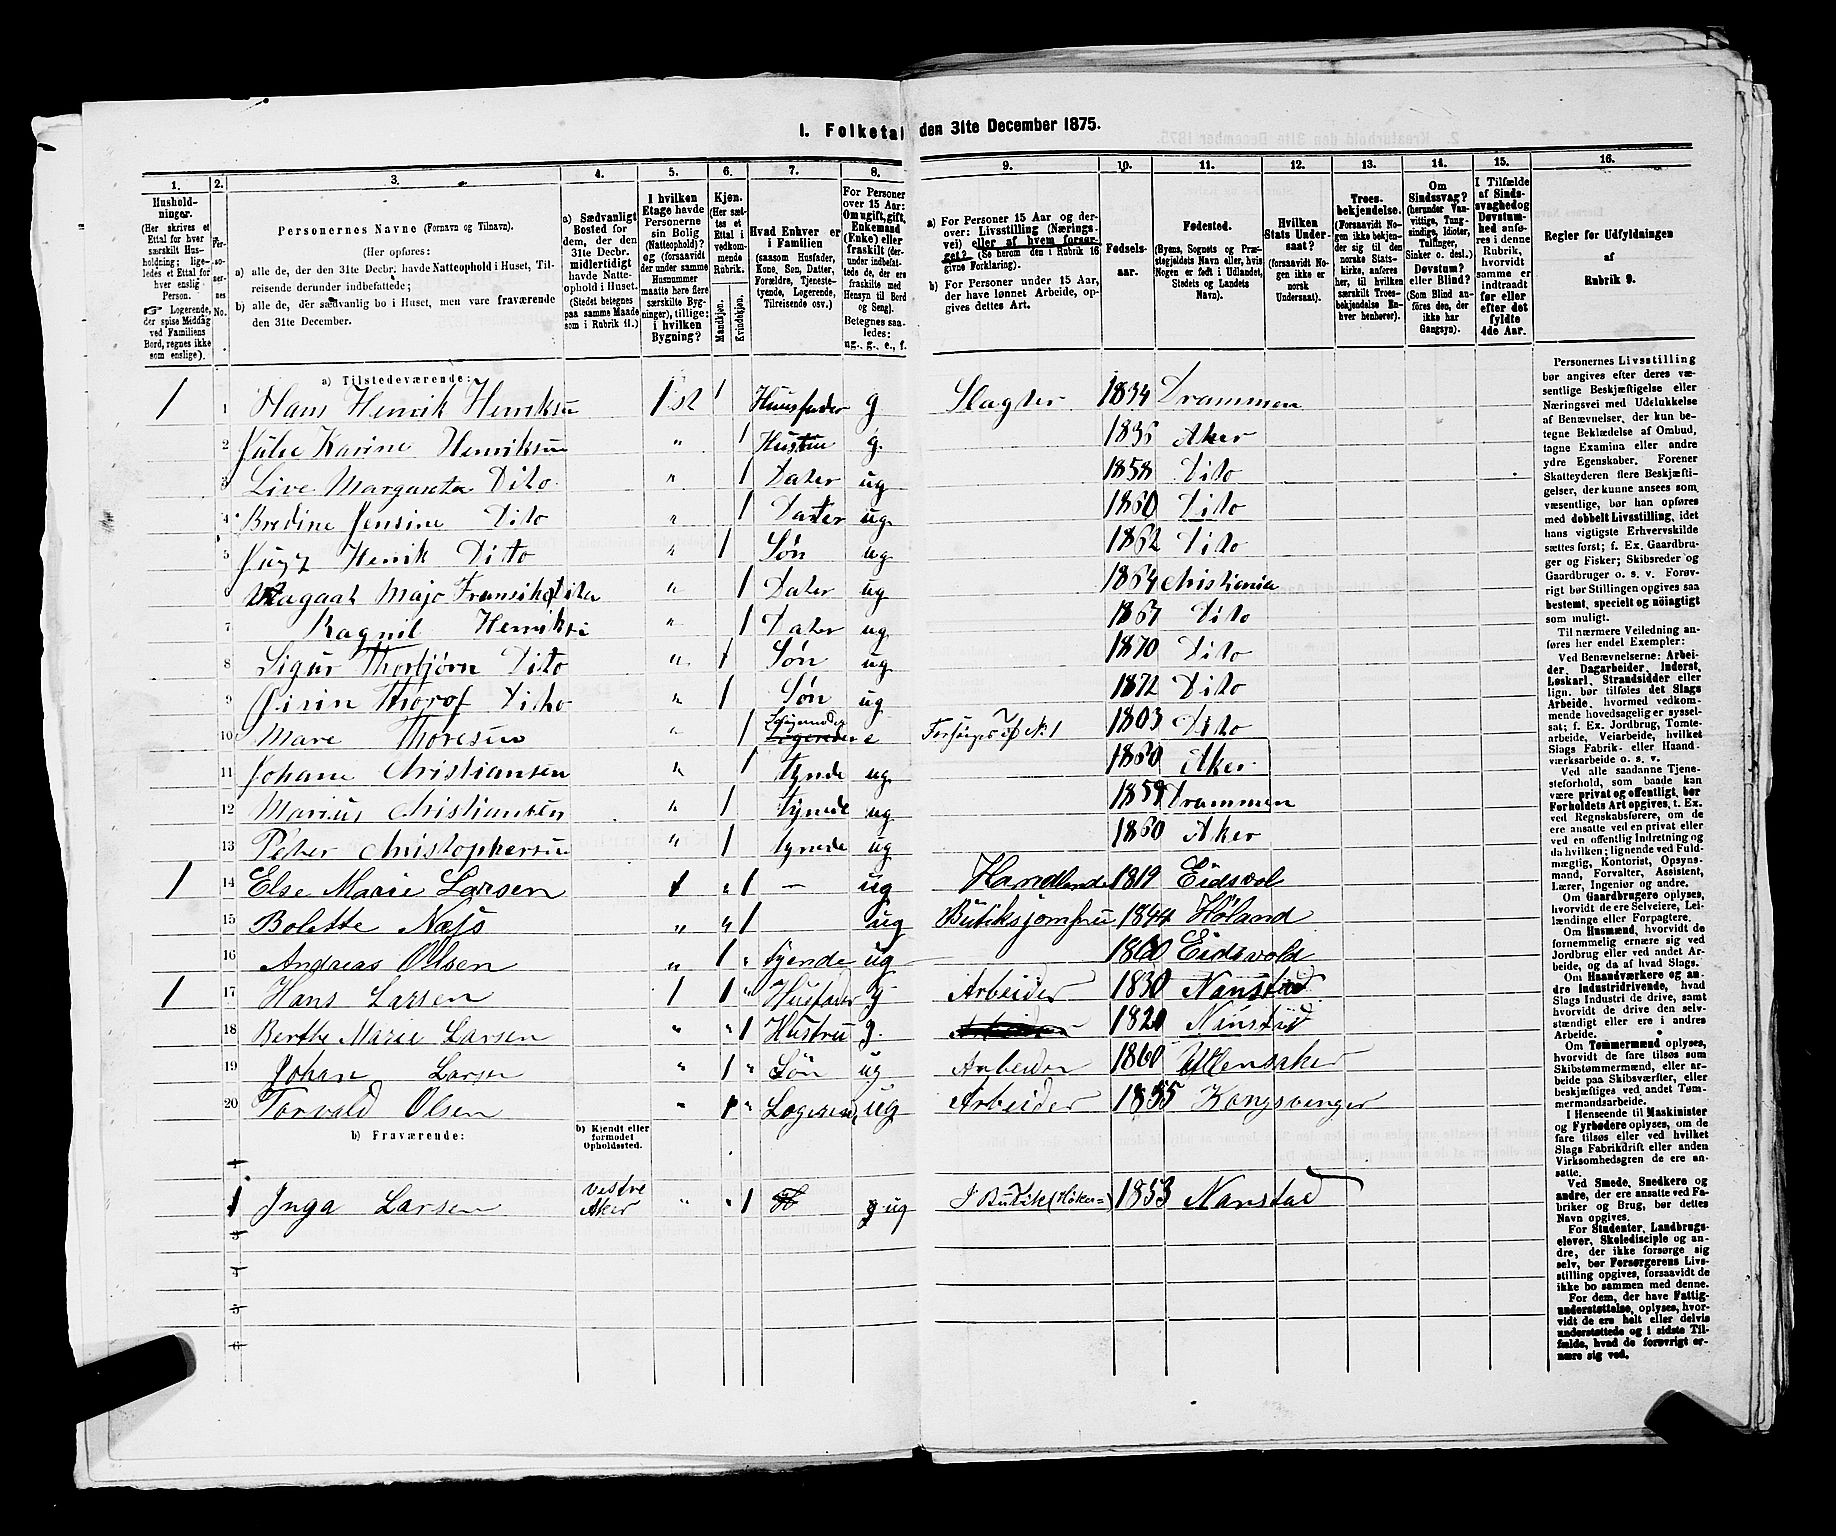 I. Folketal den 31te December 1875.
1. 2. 3. 4. 5. 6. 7. 8. 9. 10. 11. 12. 13. 14. 15. 16.
Hushold-
ninger.
(Her skrives et
Ettal for hver
særskilt Hus-
holdning; lige-
ledes et Ettal for
hver enslig
Person.
Logerende,
der spise Middag
ved Familiens
Bord, regnes ikke
som enslige).
Per-
so-
ner-
nes
No.
Personernes Navne (Fornavn og Tilnavn).
(Her opføres:
a) alle de, der den 31te Decbr. havde Natteophold i Huset, Til-
reisende derunder indbefattede;
b) alle de, der sædvanlig bo i Huset, men vare fraværende
den 31te December.
a) Sædvanligt
Bosted for
dem, der den
31te Decbr.
midlertidigt
havde Natte-
ophold i Huset.
(Stedet betegnes
paa samme Maade
som i Rubrik 11.)
I hvilken
Etage havde
Personerne
sin Bolig
(Natteophold)?
og (forsaavidt
der under samme
Husnummer
maatte høre flere
særskilte Byg-
ninger), tillige:
i hvilken
Bygning?
Kjøn.
(Her sæt-
tes et
Ettal i
vedkom-
mende
Rubrik.
Mandkjøn.
Kvindekjøn.
Hvad Enhver er
i Familien
(saasom Husfader,
Kone, Søn, Datter,
Forældre, Tjeneste-
tyende, Logerende,
Tilreisende osv.)
For Personer
over 15 Aar:
Om ugift, gift,
Enkemand
(Enke) eller
fraskilt (der-
under indbefat-
tede de, der ere
fraskilte med
Hensyn til Bord
og Seng).
Betegnes saa-
ledes:
ug., g., e., f.
a) For Personer 15 Aar og der-
over: Livsstilling (Nærings-
vei) eller af hvem forsør-
get? (Se herom den i Rubrik 16
givne Forklaring).
b) For Personer under 15 Aar,
der have lønnet Arbeide, op-
gives dettes Art.
Fødsels-
aar.
Fødested.
(Byens, Sognets og Præ-
stegjeldets Navn eller, hvis
Nogen er født i Udlandet,
Stedets og Landets
Navn).
Hvilken
Stats Under-
saat?
(forsaavidt No-
gen ikke er
norsk
Undersaat).
Troes-
bekjendelse.
(Forsaavidt No-
gen ikke bekjen-
der sig til den
norske Stats-
kirke, anføres
her, til hvilken
særskilt Troes-
bekjendelse En-
hver henhører).
Om
Sindssvag?
(herunder Van-
vittige, Tung-
sindige, Idioter,
Taffinger,
Sinker o. desl.)
Døvstum?
eller Blind?
(Som Blind an-
føres den, der
ikke har
Gangsyn).
I Tilfælde
af Sinds-
svaghed og
Døvstum-
hed anfø-
res i denne
Rubrik,
hvorvidt
samme er
indtraadt
før eller
efter det
fyldte
4de Aar.
Regler for Udfyldningen
af
Rubrik 9.
a) Tilstedeværende:
1 1 Hans Henrik Henriksen 1 st 1 Huusfader g Slagter 1834 Drammen
2 Julie Karine Henriksen " 1 Hustru g. 1836 Aker
3 Live Margareta Dito " 1 Dater ug 1858 Dito
4 Bredine Jensine Dito " 1 Dater ug 1860 Dito
5 Henrik Dito " 1 Søn ug 1862 Dito
6 Majo Dito " 1 Dater ug 1864 Christiania
7 Ragnil Henrikse " 1 Dater ug 1867 Dito
8 Sigur Thorbjørn Dito " 1 Søn ug 1870 Dito
9 Thorof Dito " 1 Søn ug 1872 Dito
10 Mare Thoresen " 1 Logerende e Forsørges af N: 1 1803 Dito
11 Johane Christiansen " 1 tynde ug 1860 Aker
12 Marius Christiansen " 1 tynde ug 1859 Drammen
13 Peter Christophersen " 1 tynde ug 1860 Aker
1 14 Else Marie Larsen 1 " 1 — ug Handlende 1819 Eidsvol
15 Bolette Næss " " 1 ug Butiksjomfru 1844 Høland
16 Andreas Olsen " 1 " tyende ug — 1860 Eidsvold
1 17 Hans Larsen 1 1 " Husfader g Arbeider 1830 Nanstad
18 Berthe Marie Larsen " " 1 Hustru g Arbeider 1820 Nanstad
19 Johan Larsen " 1 " Søn ug Arbeider 1860 Ullensaker
20 Torvald Olsen " 1 " Logerend ug Arbeider 1855 Kongsvinger
b) Fraværende:
b) Kjendt eller
formodet
Opholdssted.
1
1 Inga Larsen vestre Aker " " 1 g ug I Butik (Høker=) 1853 Nanstad
3
4
5
6
Personernes Livsstilling
bør angives efter deres væ-
sentlige Beskjæftigelse eller
Næringsvei med Udelukkelse
af Benævnelser, der kun be-
tegne Beklædelse af Ombud,
tagne Examina eller andre
ydre Egenskaber. Forener
Skatteyderen flere Beskjæfti-
gelser, der kunne ansees som
væsentlige, bør han opføres
med dobbelt Livsstilling, idet
hans vigtigste Erhvervskilde
sættes først; f. Ex. Gaardbru-
ger og Fisker; Skibsreder og
Gaardbruger o. s. v. Forøv-
rigt bør Stillingen opgives saa
bestemt, specielt og nöiagtigt
som muligt.
Til nærmere Veiledning an-
føres her endel Exempler:
Ved Benævnelserne: Arbei-
der, Dagarbeider, Inderst,
Løskarl, Strandsidder eller
lign. bør tilføies det Slags
Arbeide, hvormed vedkom-
mende hovedsagelig er syssel-
sat; f. Ex. Jordbrug, Tomte-
arbeide, Veiarbeide, hvilket
Slags Fabrik- eller Haand-
værksarbeide o. s. v.
Ved alle saadanne Tjene-
steforhold, som baade kan
være privat og offentligt, bør
Forholdets Art opgives, t. Ex.
ved Regnskabsførere, om de
ere ansatte ved en privat eller
ved en offentlig Indretning og
da hvilken; lignende ved Fuld-
mægtig, Kontorist, Opsyns-
mand, Forvalter, Assistent,
Lærer, Ingeniør og andre.
Om Gaardbrugere oplyses,
hvorvidt de ere Selveiere, Lei-
lændinge eller Forpagtere.
Om Husmænd, hvorvidt de
fornemmelig ernære sig ved
Jordbrug eller ved andet Ar-
beide, og da af hvad Slags.
Om Haandværkere og an-
dre Industridrivende, hvad
Slags Industri de drive, samt
hvorvidt de drive den selv-
stændigt eller ere i andres
Arbeide.
Om Tømmermænd oplyses,
hvorvidt de fare tilsøs som
Skibstømmermænd, eller ar-
beide paa Skibsværfter, eller
beskjæftiges ved andet Tøm-
mermandsarbeide.
I Henseende til Maskinister
og Fyrbødere oplyses, om de
fare tilsøs eller ved hvilket
Slags Fabrikdrift eller anden
Virksomhedsgren de ere an-
satte.
Ved Smede, Snedkere og
andre, der ere ansatte ved Fa-
briker og Brug, bør dettes
Navn opgives.
For Studenter, Landbrugs-
elever, Skoledisciple og an-
dre, der ikke forsørge sig
selv, bør Forsørgerens Livs-
stilling opgives, forsaavidt de
ikke bo sammen med denne.
For dem, der have Fattig-
understøttelse, oplyses, hvor-
vidt de ere helt eller delvis
understøttede og i sidste Til-
fælde, hvad de forøvrigt er-
nære sig ved.